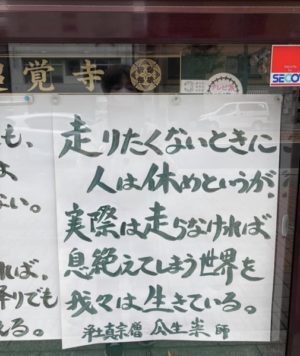 超覚寺
SECO
走りたくないときに
人は休めというが、
実際は走らなければ
息絶えてしまう世界を
我々は生きている。
浄土真宗僧 瓜生 崇 師
も、
ない。
れば、
降りでも
える。